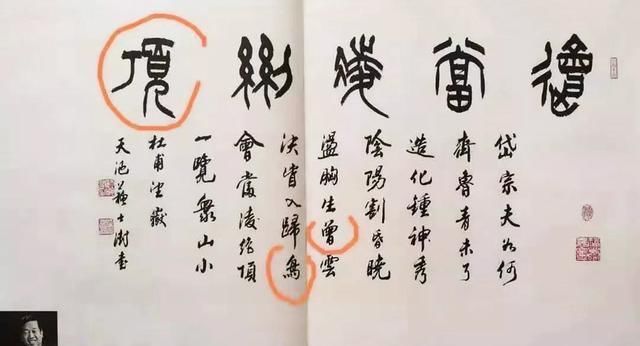 會當凌絕頂
岱宗夫如何
齊魯青未了
造化鍾神秀
陰陽割昏曉
盪胸生曾雲
決眥入歸鳥
會當淩絕頂
一覽衆山小
杜甫望嶽
蘇士澍書